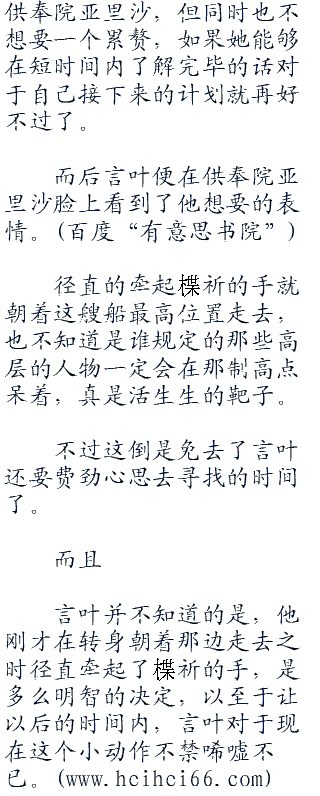 供奉院亚里沙，但同时也不
想要一个累赘，如果她能够
在短时间内了解完毕的话对
于自己接下来的计划就再好
不过了。
而后言叶便在供奉院亚
里沙脸上看到了他想要的表
情。(百度“有意思书院”)
径直的牵起楪祈的手就
朝着这艘船最高位置走去，
也不知道是谁规定的那些高
层的人物一定会在那制高点
呆着，真是活生生的靶子。
不过这倒是免去了言叶
还要费劲心思去寻找的时间
了。
而且
言叶并不知道的是，他
刚才在转身朝着那边走去之
时径直牵起了楪祈的手，是
多么明智的决定，以至于让
以后的时间内，言叶对于现
在这个小动作不禁唏嘘不
已。(www.hcihci66.com)